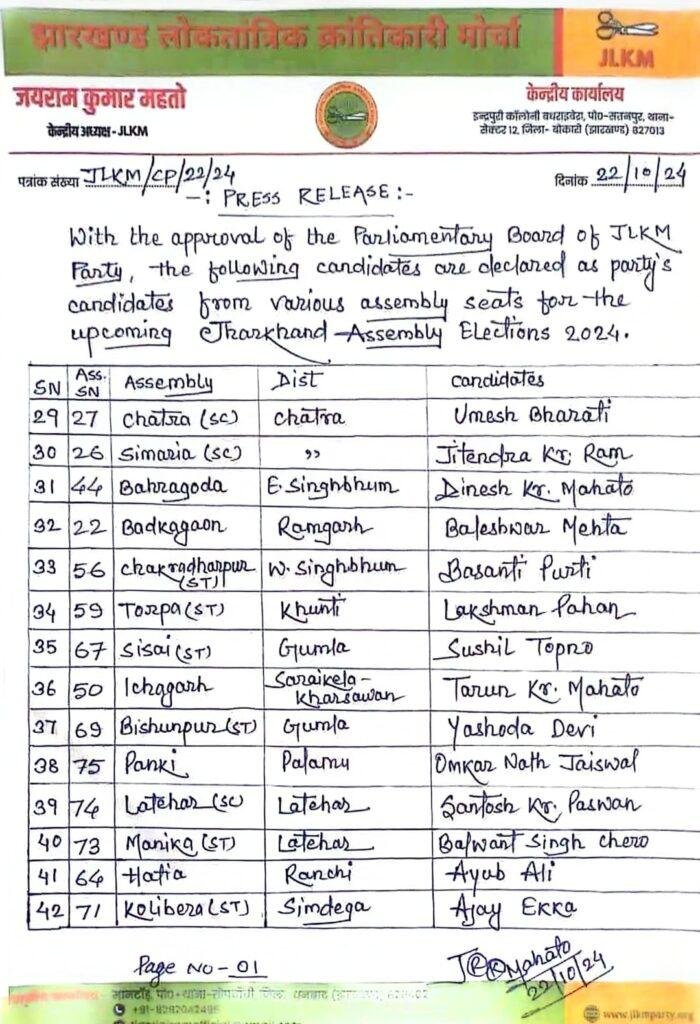 झारखण्ड लोकतांत्रिक क्रांतिकारी मोर्चा
JLKM
जयराम कुमार महतो
केन्द्रीय अध्यक्ष - JLKM
केन्द्रीय कार्यालय
इन्द्रपुरी कॉलोनी बधराइबेरा, पो०-सतनपुर, थाना-
सेक्टर 12, जिला- बोकारो (झारखण्ड) 827013
पत्रांक संख्या JLKM/CP/22/24
दिनांक 22/10/24
-: PRESS RELEASE :-
With the approval of the Parliamentary Board of JLKM
Party, the following candidates are declared as party's
candidates from various assembly seats for the
upcoming Jharkhand Assembly Elections 2024.
SN Ass. SN Assembly Dist Candidates
29 27 Chatra (SC) Chatra Umesh Bharati
30 26 Simaria (SC) " Jitendra Kr. Ram
31 44 Bahragoda E. Singhbhum Dinesh Kr. Mahato
32 22 Badkagaon Ramgarh Baleshwar Mehta
33 56 Chakradharpur (ST) W. Singhbhum Basanti Purti
34 59 Torpa (ST) Khunti Lakshman Pahan
35 67 Sisai (ST) Gumla Sushil Topno
36 50 Ichagarh Saraikela-Kharsawan Tarun Kr. Mahato
37 69 Bishunpur (ST) Gumla Yashoda Devi
38 75 Panki Palamu Omkar Nath Jaiswal
39 74 Latehar (SC Latehar Santosh Kr. Paswan
40 73 Manika (ST) Latehar Balwant Singh Chero
41 64 Hatia Ranchi Ayub Ali
42 71 Kolibera (ST) Simdega Ajay Ekka
Page No - 01
Mahato
22/10/24
www.jlkmparty.org